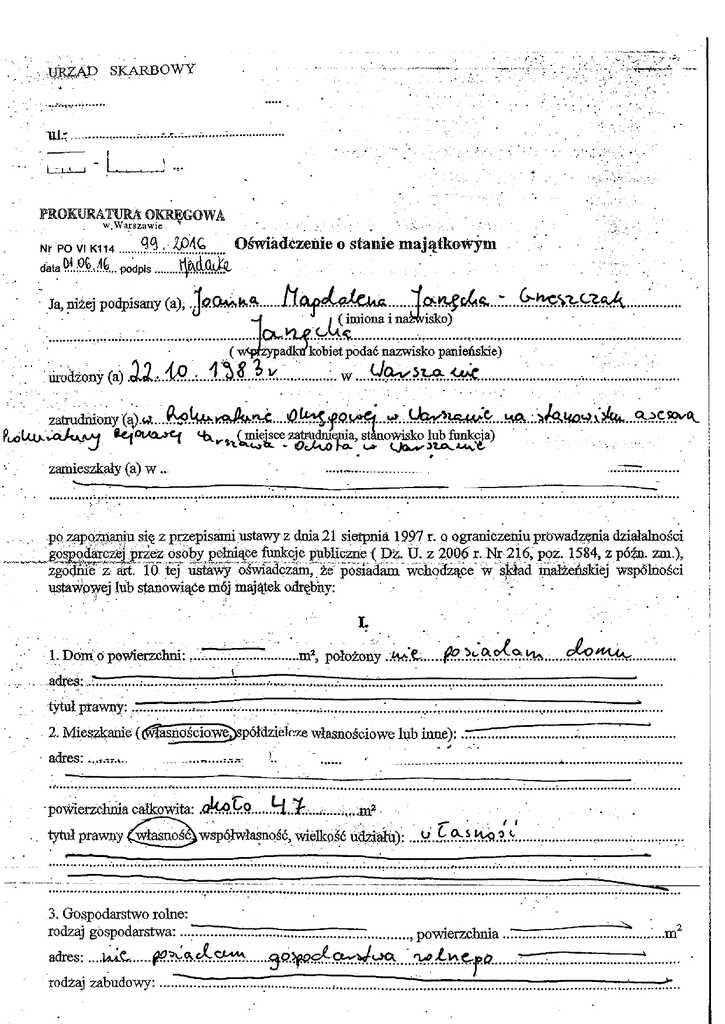 URZĄD SKARBOWY
ul.
PROKURATURA OKRĘGOWA
w Warszawie
Nr PO VI K114 99.2016 Oświadczenie o stanie majątkowym
data 01.06.16 podpis
Ja, niżej podpisany (a), Joanna Magdalena Janęcka - Grzeszczak
( imiona i nazwisko)
Janęcka
( w przypadku kobiet podać nazwisko panieńskie)
urodzony (a) 22.10.1983 r w Warszawie
zatrudniony (a) w Prokuraturze Okręgowej w Warszawie na stanowisku asesora
Prokuratury Rejonowej (miejsce zatrudnienia, stanowisko lub funkcja)
Warszawa - Ochota w Warszawie
zamieszkały (a) w ..
po zapoznaniu się z przepisami ustawy z dnia 21 sierpnia 1997 r. o ograniczeniu prowadzenia działalności
gospodarczej przez osoby pełniące funkcje publiczne ( Dz. U. z 2006 r. Nr 216, poz. 1584, z późn. zm.),
zgodnie z art. 10 tej ustawy oświadczam, że posiadam wchodzące w skład małżeńskiej wspólności
ustawowej lub stanowiące mój majątek odrębny:
I.
1. Dom o powierzchni: m², położony nie posiadam domu
adres:
tytuł prawny:
2. Mieszkanie (własnościowe, spółdzielcze własnościowe lub inne):
adres:
powierzchnia całkowita: około 47 m²
tytuł prawny (własność, współwłasność, wielkość udziału): własność
3. Gospodarstwo rolne:
rodzaj gospodarstwa: , powierzchnia m²
adres: nie posiadam gospodarstwa rolnego
rodzaj zabudowy: